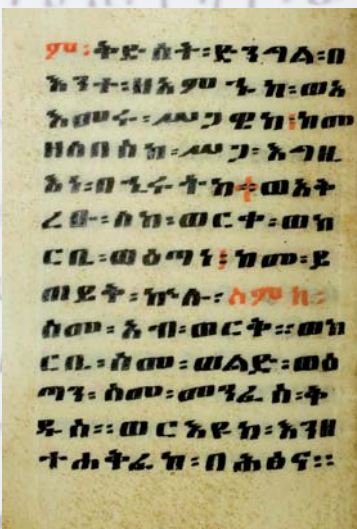 ም፡ቅድስት፡ድንግል፡በ
እንተ፡ዘእምኔኪ፡ወአ
እመሩ፡ሥጋዌከ፡ከመ
ዘለበስከ፡ሥጋ፡እግዚ
እነ፡በኂሩትከ፡ወአት
ለከ፡ወርቀ፡ወከ
ርቤ፡ወዕጣነ፡ከመ፡ይ
ወደይ፡ኵሉ፡
ስመ፡አብ፡ወርቅ።ወከ
ርቤ፡ስመ፡ወልድ፡ወዕ
ጣን፡ስመ፡መንፈስ፡ቅ
ዱስ።ወርእየከ፡እንዘ
ተሐቅፈከ፡በሕፅና።